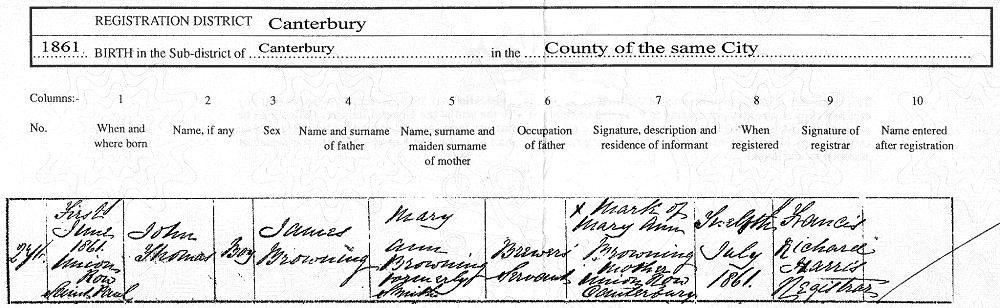 REGISTRATION DISTRICT Canterbury
1861 BIRTH in the Sub-district of Canterbury in the County of the same City
Columns:- 1 2 3 4 5 6 7 8 9 10
No. When and where born Name, if any Sex Name and surname of father Name, surname and maiden surname of mother Occupation of father Signature, description and residence of informant When registered Signature of registrar Name entered after registration
First June 1861. Union Row Saint Paul
John Thomas
Boy
James Browning
Mary Ann Browning formerly Smith
Brewers Servant
X Mark of Mary Ann Browning Mother Union Row Canterbury
Twelfth July 1861.
Francis Richard Harris Registrar